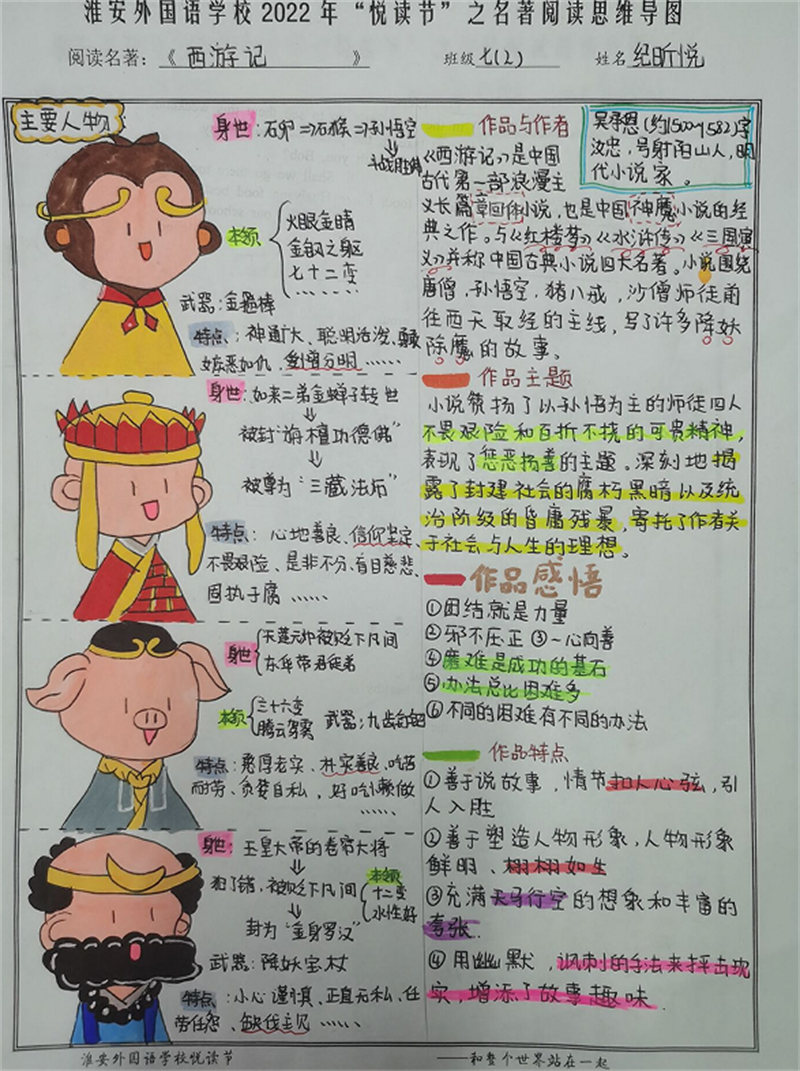 淮安外国语学校2022年“悦读节”之名著阅读思维导图
阅读名著：《 西游记 》 班级 七(2) 姓名 纪昕悦
主要人物
身世：石卵⇒石猴⇒孙悟空
⇓
斗战胜佛
本领
火眼金睛
金钢之躯
七十二变
……
武器：金箍棒
特点：神通广大、聪明活泼、
嫉恶如仇，爱憎分明……
身世：如来二弟金蝉子转世
⇓
被封“旃檀功德佛”
⇓
被尊为“三藏法师”
特点：心地善良、信仰坚定、
不畏艰险、是非不分、盲目慈悲、
固执于腐……
身世
天蓬元帅被贬下凡间
东华帝君徒者
本领
三十六变
腾云驾雾
武器：九齿钉钯
特点：憨厚老实、朴实善良、吃苦
耐劳、贪婪自私，好吃懒做
……
身世：玉皇大帝的卷帘大将
⇓
犯了错，被贬下凡间
⇓
封为“金身罗汉”
本领
十二变
水性好
武器：降妖宝杖
特点：小心谨慎、正直无私、任
劳任怨、缺伐主见……
作品与作者
吴承恩(约1500-1582)字
汝忠，号射阳山人，明
代小说家。
《西游记》是中国
古代第一部浪漫主
义长篇章回体小说，也是中国神魔小说的经
典之作。与《红楼梦》《水浒传》《三国演
义》并称中国古典小说四大名著。小说围绕
唐僧，孙悟空，猪八戒，沙僧师徒前
往西天取经的主线，写了许多降妖
除魔的故事。
作品主题
小说赞扬了以孙悟为主的师徒四人
不畏艰险和百折不挠的可贵精神，
表现了惩恶扬善的主题。深刻地揭
露了封建社会的腐朽黑暗以及统
治阶级的昏庸残暴，寄托了作者关
于社会与人生的理想。
作品感悟
①团结就是力量
②邪不压正 ③一心向善
④磨难是成功的基石
⑤办法总比困难多
⑥不同的困难有不同的办法
作品特点
①善于说故事，情节扣人心弦，引
人入胜
②善于塑造人物形象，人物形象
鲜明、栩栩如生
③充满天马行空的想象和丰富的
夸张
④用幽默，讽刺的手法来抨击现
实，增添了故事趣味
淮安外国语学校悦读节 ——和整个世界站在一起